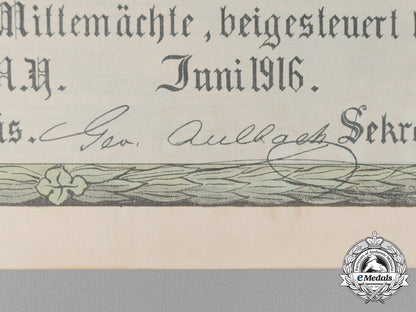 Millemächte, beigesteuert
A.Y. Juni 1916.
is. Geo. Aulbach Sekre
eMedals